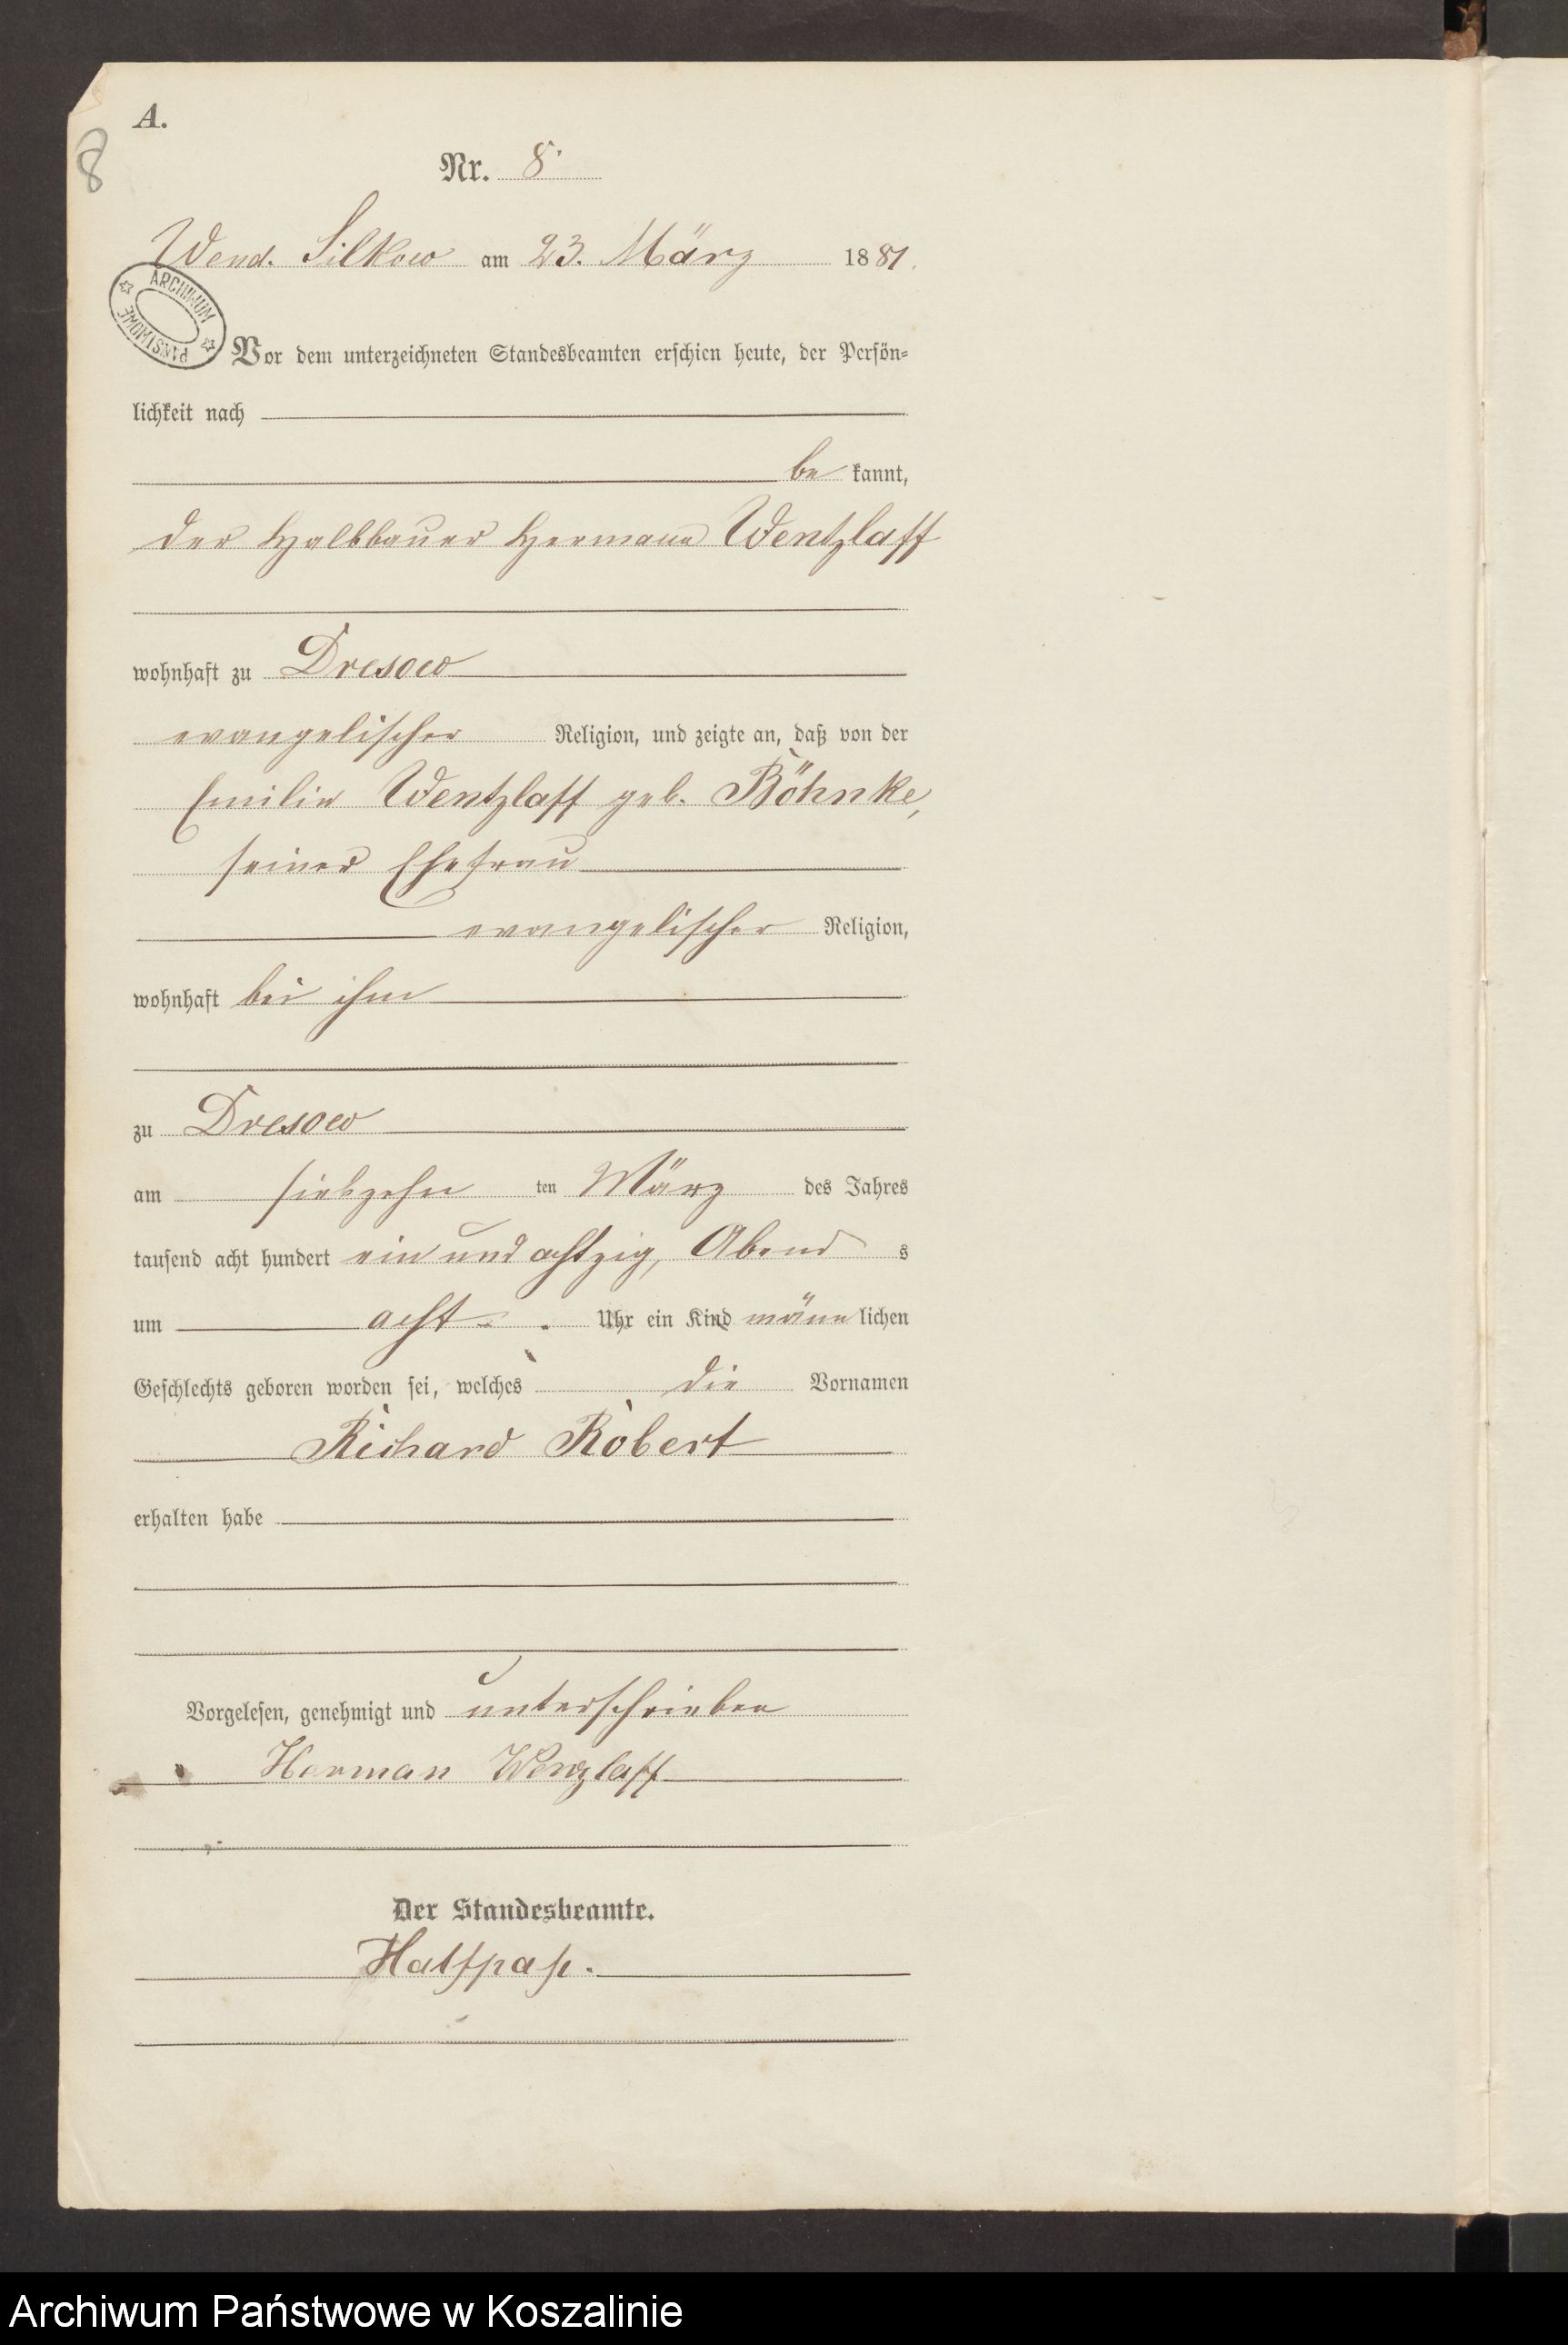 A.
8
Nr. 8.
Wend. Silkow am 23. März 1881.
ARCHIWUM PAŃSTWOWE
Vor dem unterzeichneten Standesbeamten erschien heute, der Persön=
lichkeit nach
be kannt,
der Halbbauer Hermann Wentzlaff
wohnhaft zu Dresow
evangelischer Religion, und zeigte an, daß von der
Emilie Wentzlaff geb. Böhnke,
seiner Ehefrau
evangelischer Religion,
wohnhaft bei ihm
zu Dresow
am siebzehn ten März des Jahres
tausend acht hundert ein und achtzig, Abend s
um acht Uhr ein Kind männ lichen
Geschlechts geboren worden sei, welches die Vornamen
Richard Robert
erhalten habe
Vorgelesen, genehmigt und unterschrieben
Herman Wenzlaff
Der Standesbeamte.
Archiwum Państwowe w Koszalinie